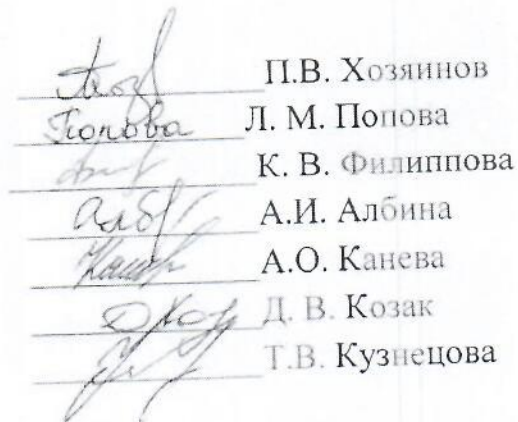 П.В. Хозяинов
Попова Л. М. Попова
К. В. Филиппова
Алб А.И. Албина
А.О. Канева
Д. В. Козак
Т.В. Кузнецова